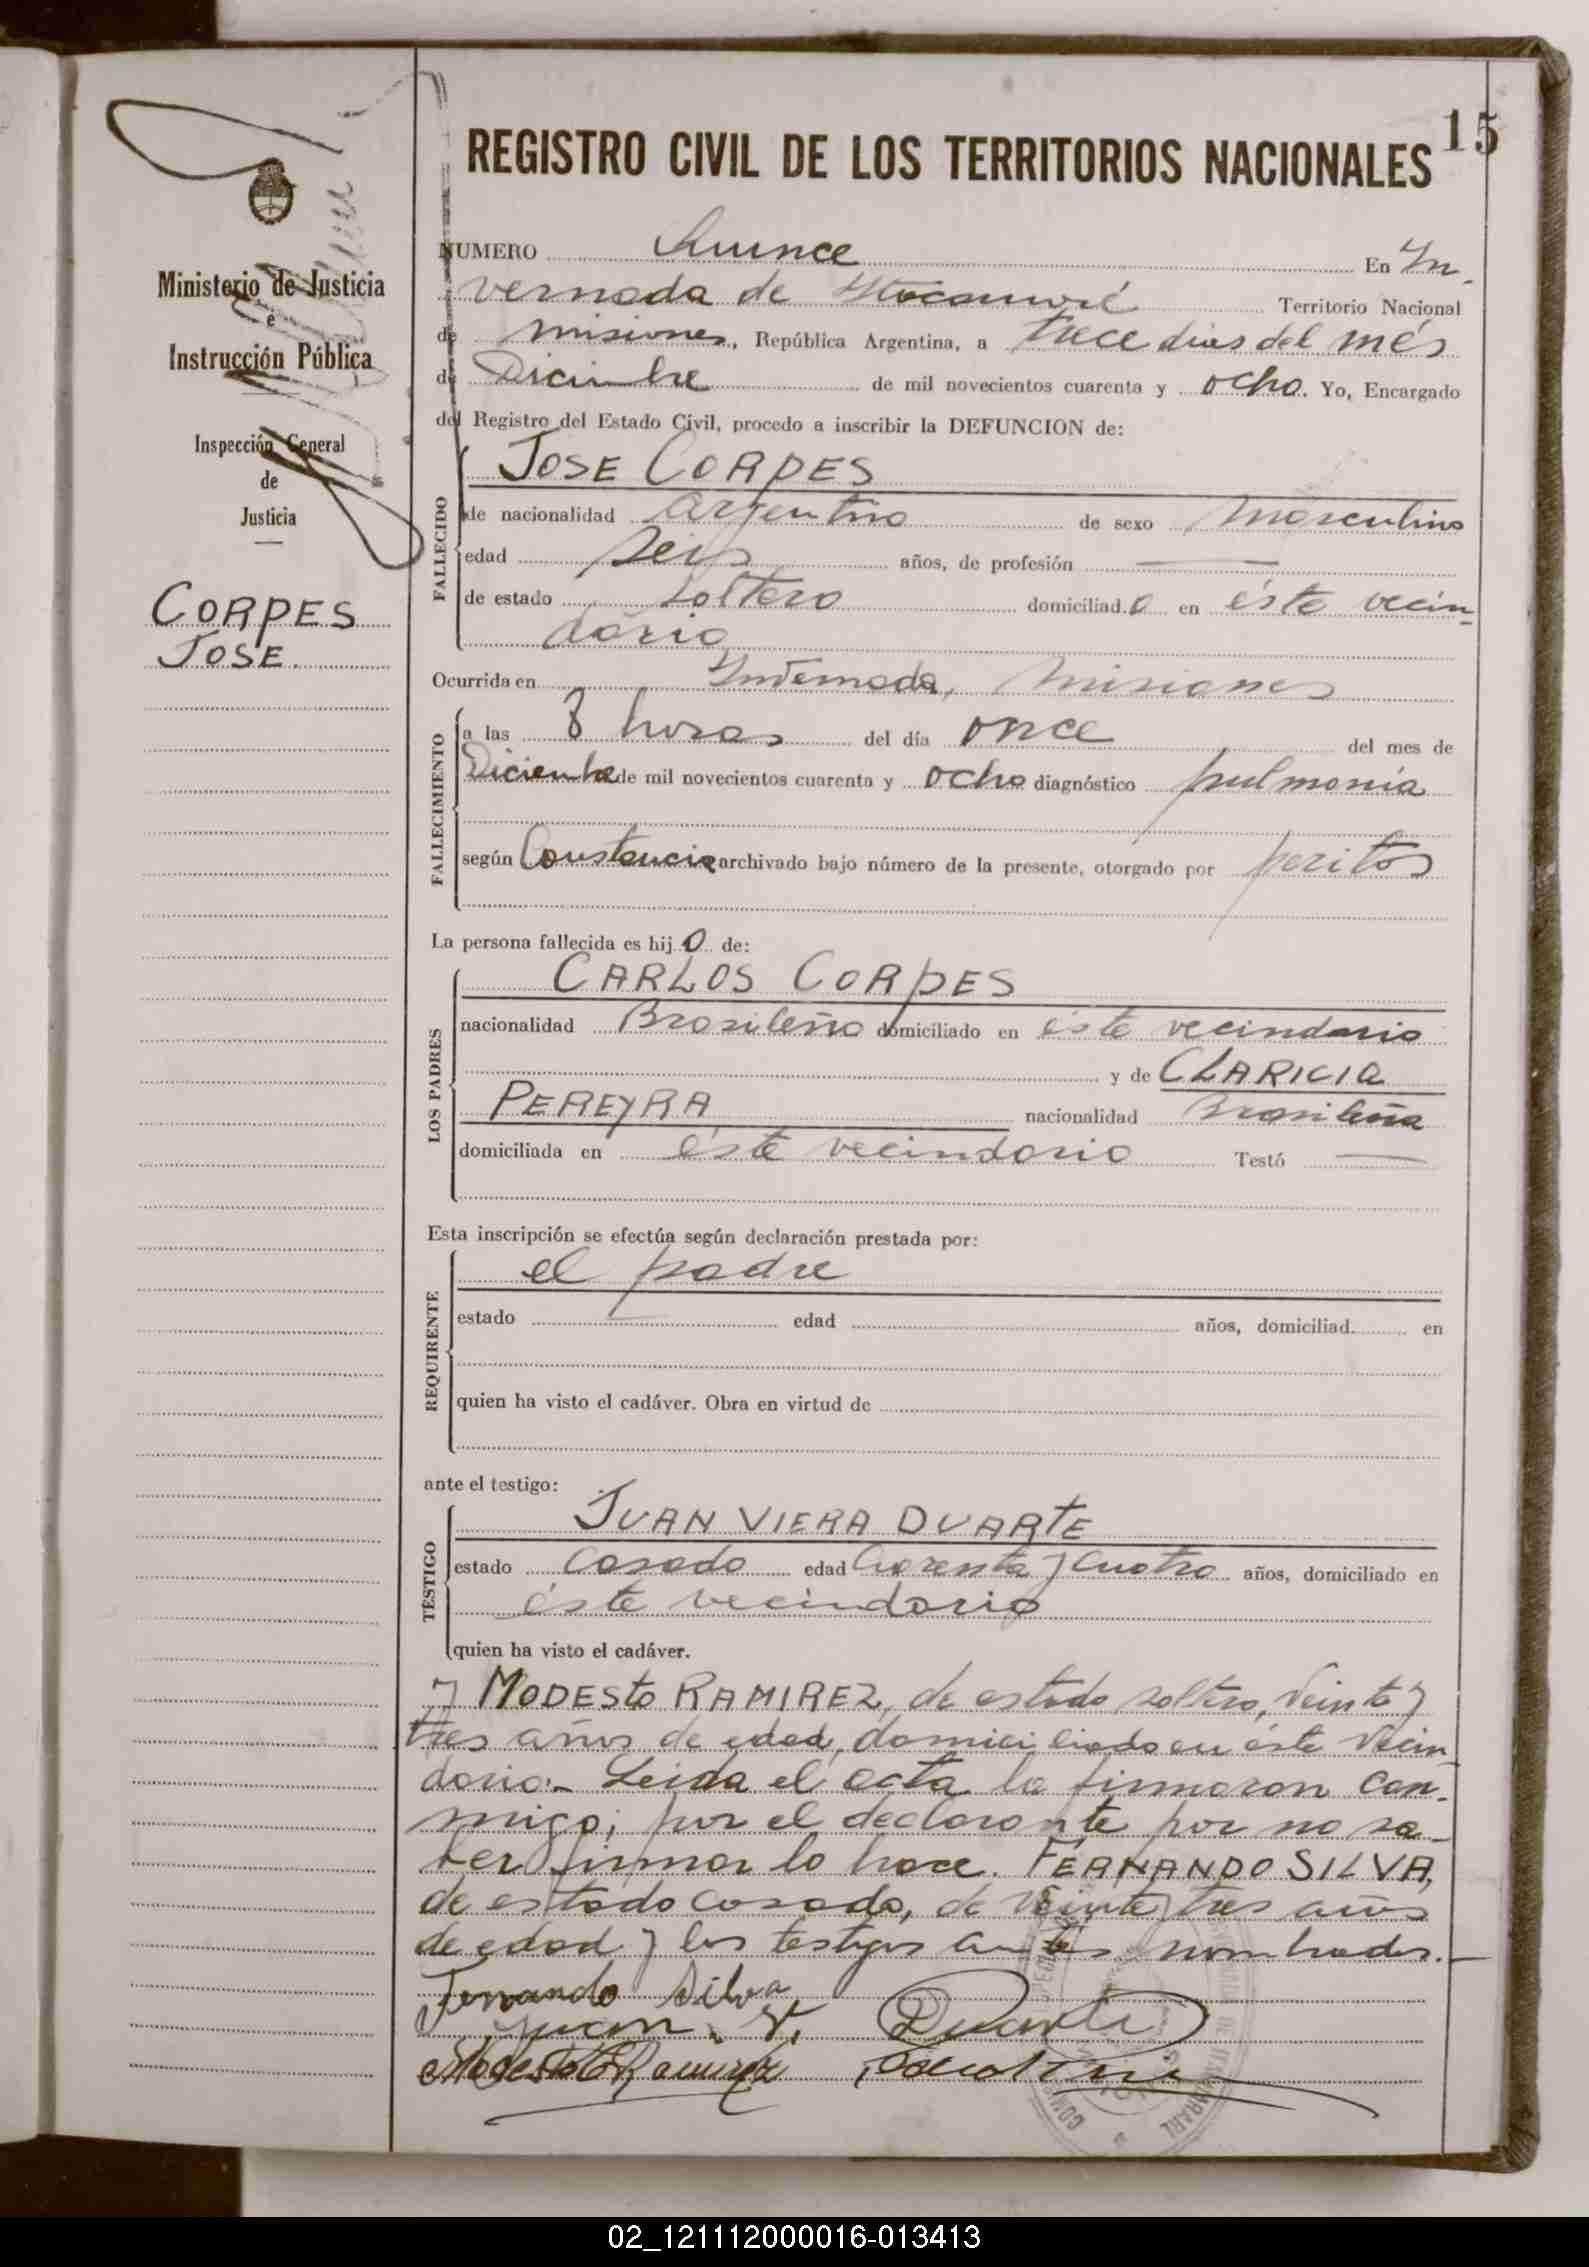 15
REGISTRO CIVIL DE LOS TERRITORIOS NACIONALES
Ministerio de Justicia
é
Instrucción Pública
Inspección General
de
Justicia
CORPES
JOSE.
NUMERO Quince En In-
vernada de Itacaruaré Territorio Nacional
de Misiones, República Argentina, a trece dias del més
de Diciembre de mil novecientos cuarenta y ocho. Yo, Encargado
del Registro del Estado Civil, procedo a inscribir la DEFUNCION de:
FALLECIDO
JOSE CORPES
de nacionalidad Argentino de sexo Masculino
edad seis años, de profesión —
de estado soltero domiciliad.o en éste vecin-
dario
Ocurrida en Invernada, Misiones
FALLECIMIENTO
a las 8 horas del día once del mes de
Diciembre de mil novecientos cuarenta y ocho diagnóstico pulmonia
según Constancia archivado bajo número de la presente, otorgado por peritos
La persona fallecida es hij.o de:
LOS PADRES
CARLOS CORPES
nacionalidad Brasileño domiciliado en éste vecindario
y de CLARICIA
PEREYRA nacionalidad Brasileña
domiciliada en éste vecindario Testó —
Esta inscripción se efectúa según declaración prestada por:
REQUIRENTE
el padre
estado edad años, domiciliad. en
quien ha visto el cadáver. Obra en virtud de
ante el testigo:
TESTIGO
JUAN VIERA DUARTE
estado casado edad cuarenta y cuatro años, domiciliado en
éste vecindario
quien ha visto el cadáver.
y MODESTO RAMIREZ, de estado soltero, veinte y
tres años de edad, domiciliado en éste vecin-
dario.- Leida el acta la firmaron con-
migo; por el declarante por no sa-
ber firmar lo hace. FERNANDO SILVA,
de estado casado, de veinte y tres años
de edad y los testigos antes nombrados.-
Fernando Silva
Juan. V. Duarte
Modesto Ramirez
02_121112000016-013413